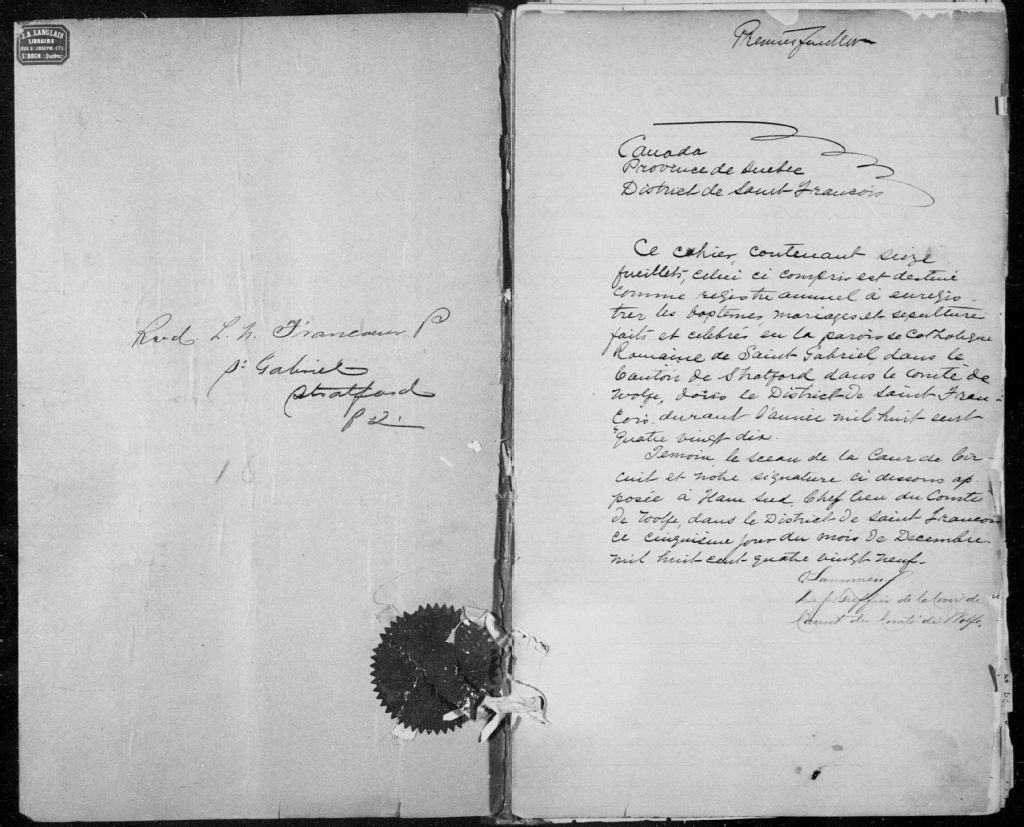 J.A. LANGLAIS
LIBRAIRE
RUE St JOSEPH 177.
St ROCH Quebec
Revd. L. N. Francoeur P
St Gabriel
Stratford
P Q.
18
Premier feuillet
Canada
Province de Quebec
District de Saint Francois
Ce cahier, contenant seize
fueillets, celui ci compris est destiné
comme régistre annuel à enregis-
trer les baptêmes, mariages et sepulture
faits et celebrés en la paroisse Catholique
Romaine de Saint Gabriel dans le
Canton de Stratford dans le comté de
Wolfe, dans le District de Saint Fran-
cois, durant l'année mil huit cent
quatre vingt dix.
Temoin le sceau de la Cour de Cir-
cuit et notre signature ci dessous ap-
posée à Ham Sud, Chef lieu du Comté
de Wolfe, dans le District de Saint Francois
ce cinquième jour du mois de Decembre
mil huit cent quatre vingt neuf.
Dep. Greffier de la Cour de
Circuit du Comté de Wolfe.